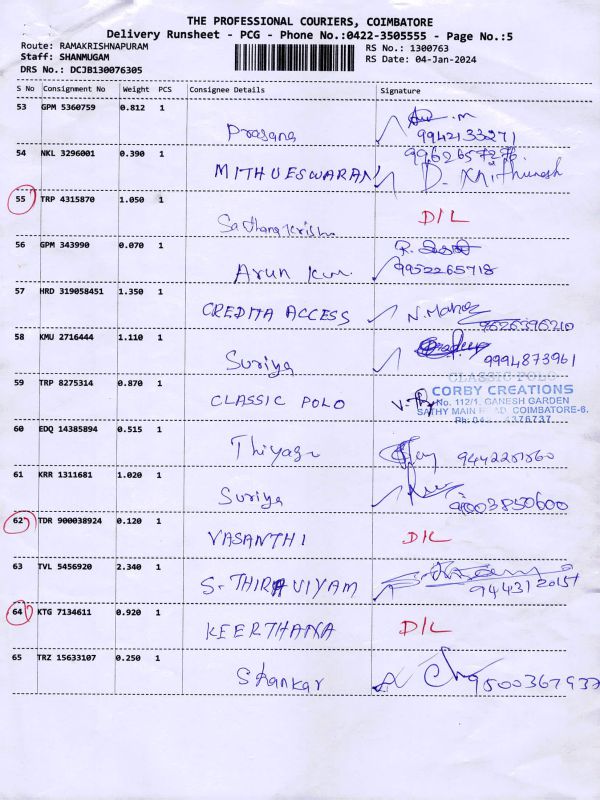 THE PROFESSIONAL COURIERS, COIMBATORE
Delivery Runsheet - PCG - Phone No.:0422-3505555 - Page No.:5
Route: RAMAKRISHNAPURAM RS No.: 1300763
Staff: SHANMUGAM RS Date: 04-Jan-2024
DRS No.: DCJB130076305
S No Consignment No Weight PCS Consignee Details Signature
53 GPM 5360759 0.812 1
Prasana 9942133271
54 NKL 3296001 0.390 1 9962657276
MITHUESWARAN D. Mithunesh
55 TRP 4315870 1.050 1 D/L
Sathana krishn
56 GPM 343990 0.070 1
Arun kum 9952265718
57 HRD 319058451 1.350 1
CREDITA ACCESS N. Manoj
9626396210
58 KMU 2716444 1.110 1
Suriya 9994873961
59 TRP 8275314 0.870 1 CLASSIC POLO
CORBY CREATIONS
CLASSIC POLO No. 112/1, GANESH GARDEN
SATHY MAIN ROAD, COIMBATORE-6.
60 EDQ 14385894 0.515 1
Thiyagu
61 KRR 1311681 1.020 1
Suriya 9003850600
62 TDR 900038924 0.120 1
VASANTHI D/L
63 TVL 5456920 2.340 1
S. THIRAVIYAM
64 KTG 7134611 0.920 1
KEERTHANA D/L
65 TRZ 15633107 0.250 1
Shankar 9500367937